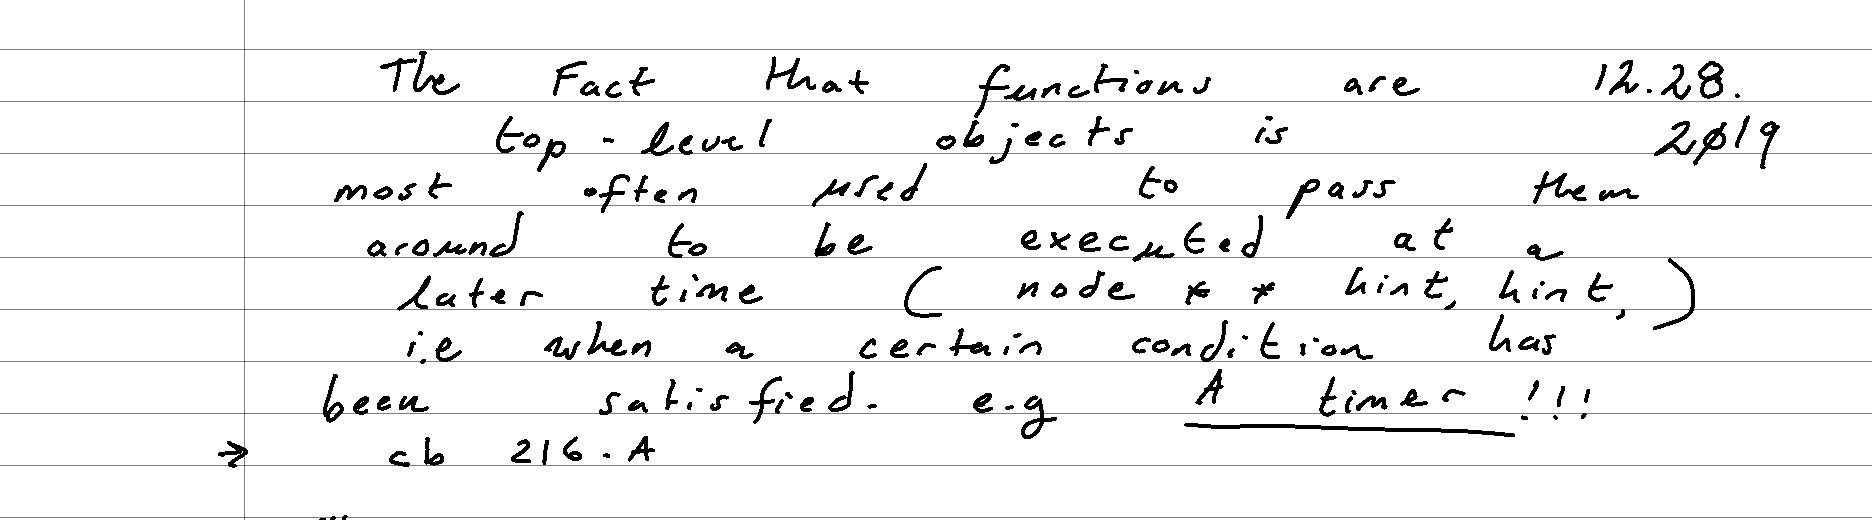 The Fact that functions are 12.28.
top-level objects is 2019
most often used to pass them
around to be executed at a
later time ( node * * hint, hint, )
i.e when a certain condition has
been satisfied. e.g A timer !!!
→ cb 216.A